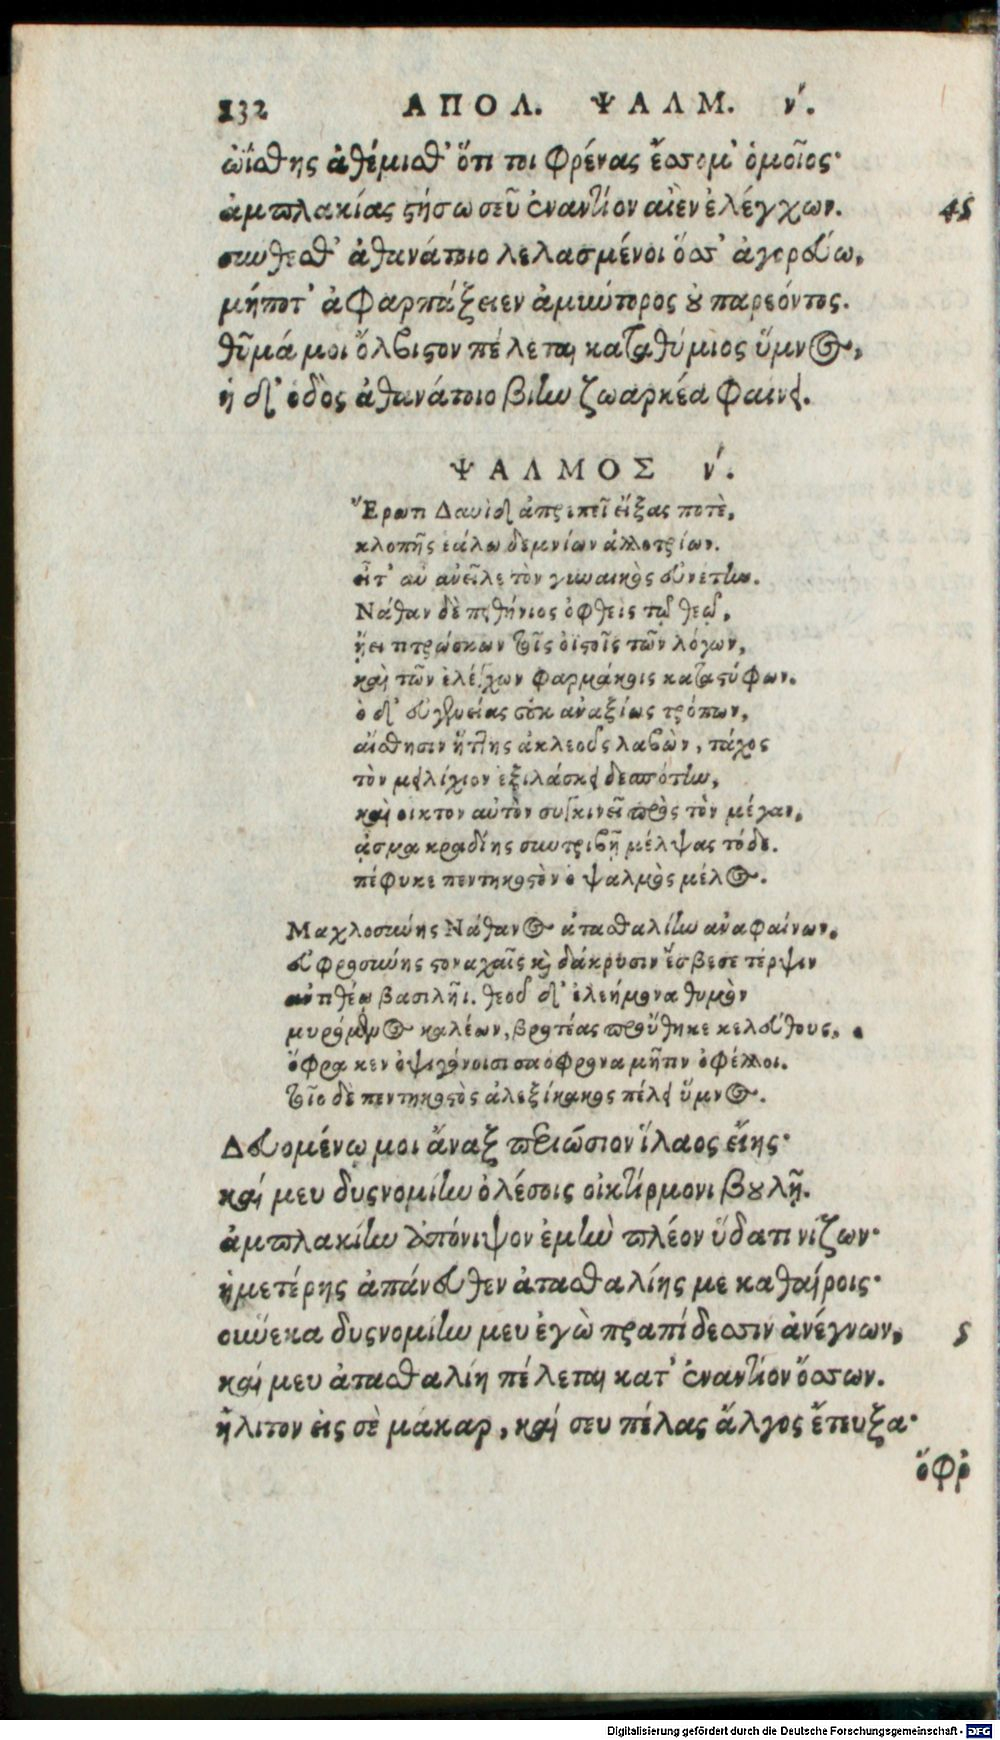 132 ΑΠΟΛ. ΨΑΛΜ. ν΄.
ὠΐσθης ἀθέμισθ' ὅτι τοι φρένας ἔσσομ' ὁμοῖος·
ἀμπλακίας στήσω σεῦ ἐναντίον αἰὲν ἐλέγχων. 45
σύνθεσθ' ἀθανάτοιο λελασμένοι ὅσσ' ἀγορεύω,
μήποτ' ἀφαρπάξειεν ἀμύντορος οὐ παρεόντος.
θῦμά μοι ὄλβιστον πέλεται καταθύμιος ὕμνος,
ἡ δ' ὁδὸς ἀθανάτοιο βίην ζωαρκέα φαίνει.
ΨΑΛΜΟΣ ν΄.
Ἔρωτι Δαυὶδ ἀπρεπεῖ εἴξας ποτὲ,
κλοπῆς ἑάλω δεμνίων ἀλλοτρίων.
εἶτ' αὖ ἀνεῖλε τὸν γυναικὸς εὐνέτην.
Νάθαν δὲ παρθήνιος ὀφθεὶς τῷ θεῷ,
ᾔει τιτρώσκων τοῖς ὀϊστοῖς τῶν λόγων,
καὶ τῶν ἐλέγχων φαρμάκοις καταστύφων.
ὁ δ' εὐγενείας οὐκ ἀναξίως τρόπων,
αἴσθησιν ἥττης ἀκλεοῦς λαβὼν, τάχος
τὸν μειλίχιον ἐξιλάσκει δεσπότην,
καὶ οἶκτον αὐτὸν συγκινεῖ πρὸς τὸν μέγαν,
ᾆσμα κραδίης συντριβῇ μέλψας τόδε.
πέφυκε πεντηκοστὸν ὁ ψαλμὸς μέλος.
Μαχλοσύνης Νάθανος ἀτασθαλίην ἀναφαίνων,
εὐφροσύνης στοναχαῖς καὶ δάκρυσιν ἔσβεσε τέρψιν
ἀντιθέῳ βασιλῆι. θεοῦ δ' ἐλεήμονα θυμὸν
μυρόμενος καλέων, βροτέας προὔθηκε κελεύθους,
ὄφρα κεν ὀψιγόνοισι σαόφρονα μῆτιν ὀφέλλοι.
τοῖο δὲ πεντηκοστὸς ἀλεξίκακος πέλει ὕμνος.
Δευομένῳ μοι ἄναξ περιώσιον ἵλαος εἴης·
καί μευ δυσνομίην ὀλέσσις οἰκτίρμονι βουλῇ.
ἀμπλακίην ἀπόνιψον ἐμὴν πλέον ὕδατι νίζων·
ἡμετέρης ἀπάνευθεν ἀτασθαλίης με καθαίροις·
οὕνεκα δυσνομίην μευ ἐγὼ πραπίδεσσιν ἀνέγνων, 5
καί μευ ἀτασθαλίη πέλεται κατ' ἐναντίον ὄσσων.
ἤλιτον εἰς σὲ μάκαρ, καί σευ πέλας ἄλγος ἔτευξα·
ὄφρ
Digitalisierung gefördert durch die Deutsche Forschungsgemeinschaft - DFG